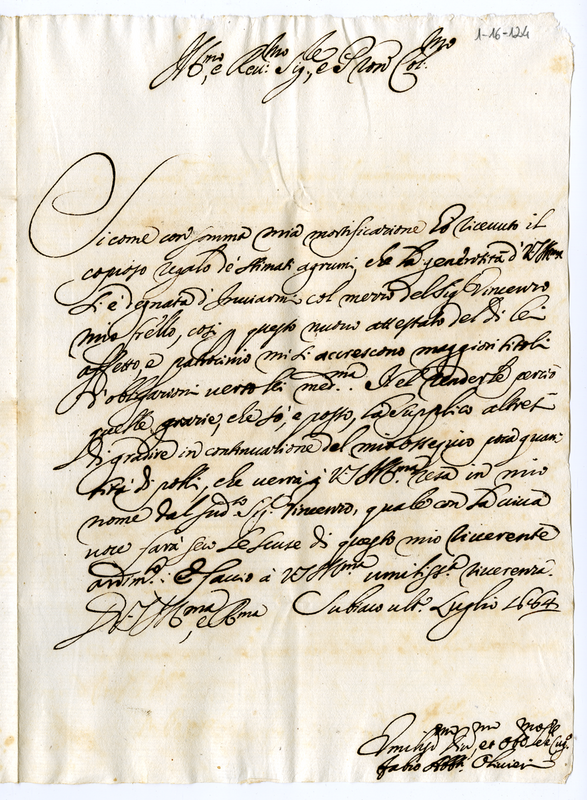 1-16-124
Ill.mo, e Reu.mo Sig.re, e Pron Col.mo
Sicome con somma mia mortificazione hò riceuuto il
copioso regalo de stimati agrumi, che la generosità d' VS Ill.ma
si è degnata d' Inuiarmi col mezzo del Sig. Vincenzo
mio frello, così questo nuouo attestato del di lei
affetto, e patrocinio mi si accrescono maggiori titoli
d' obligazioni uerso lei med.ma Nel renderle perciò
quelle grazie, che sò, e posso, la supplico altret.
di gradire in continuazione del mio ossequio poca quan-
tità di polli, che uerrà à VS Ill.ma resa in mio
nome dal sud.to Sig. Vincenzo, quale con la uiua
uoce farà seco le scuse di questo mio riuerente
ardim.o: E faccio à VS Ill.ma umiliss.a riuerenza.
D. VS Ill.ma, e R.ma Subiaco ult.o Luglio 1664
Deuo.mo et Obl.
Fabio Olivieri